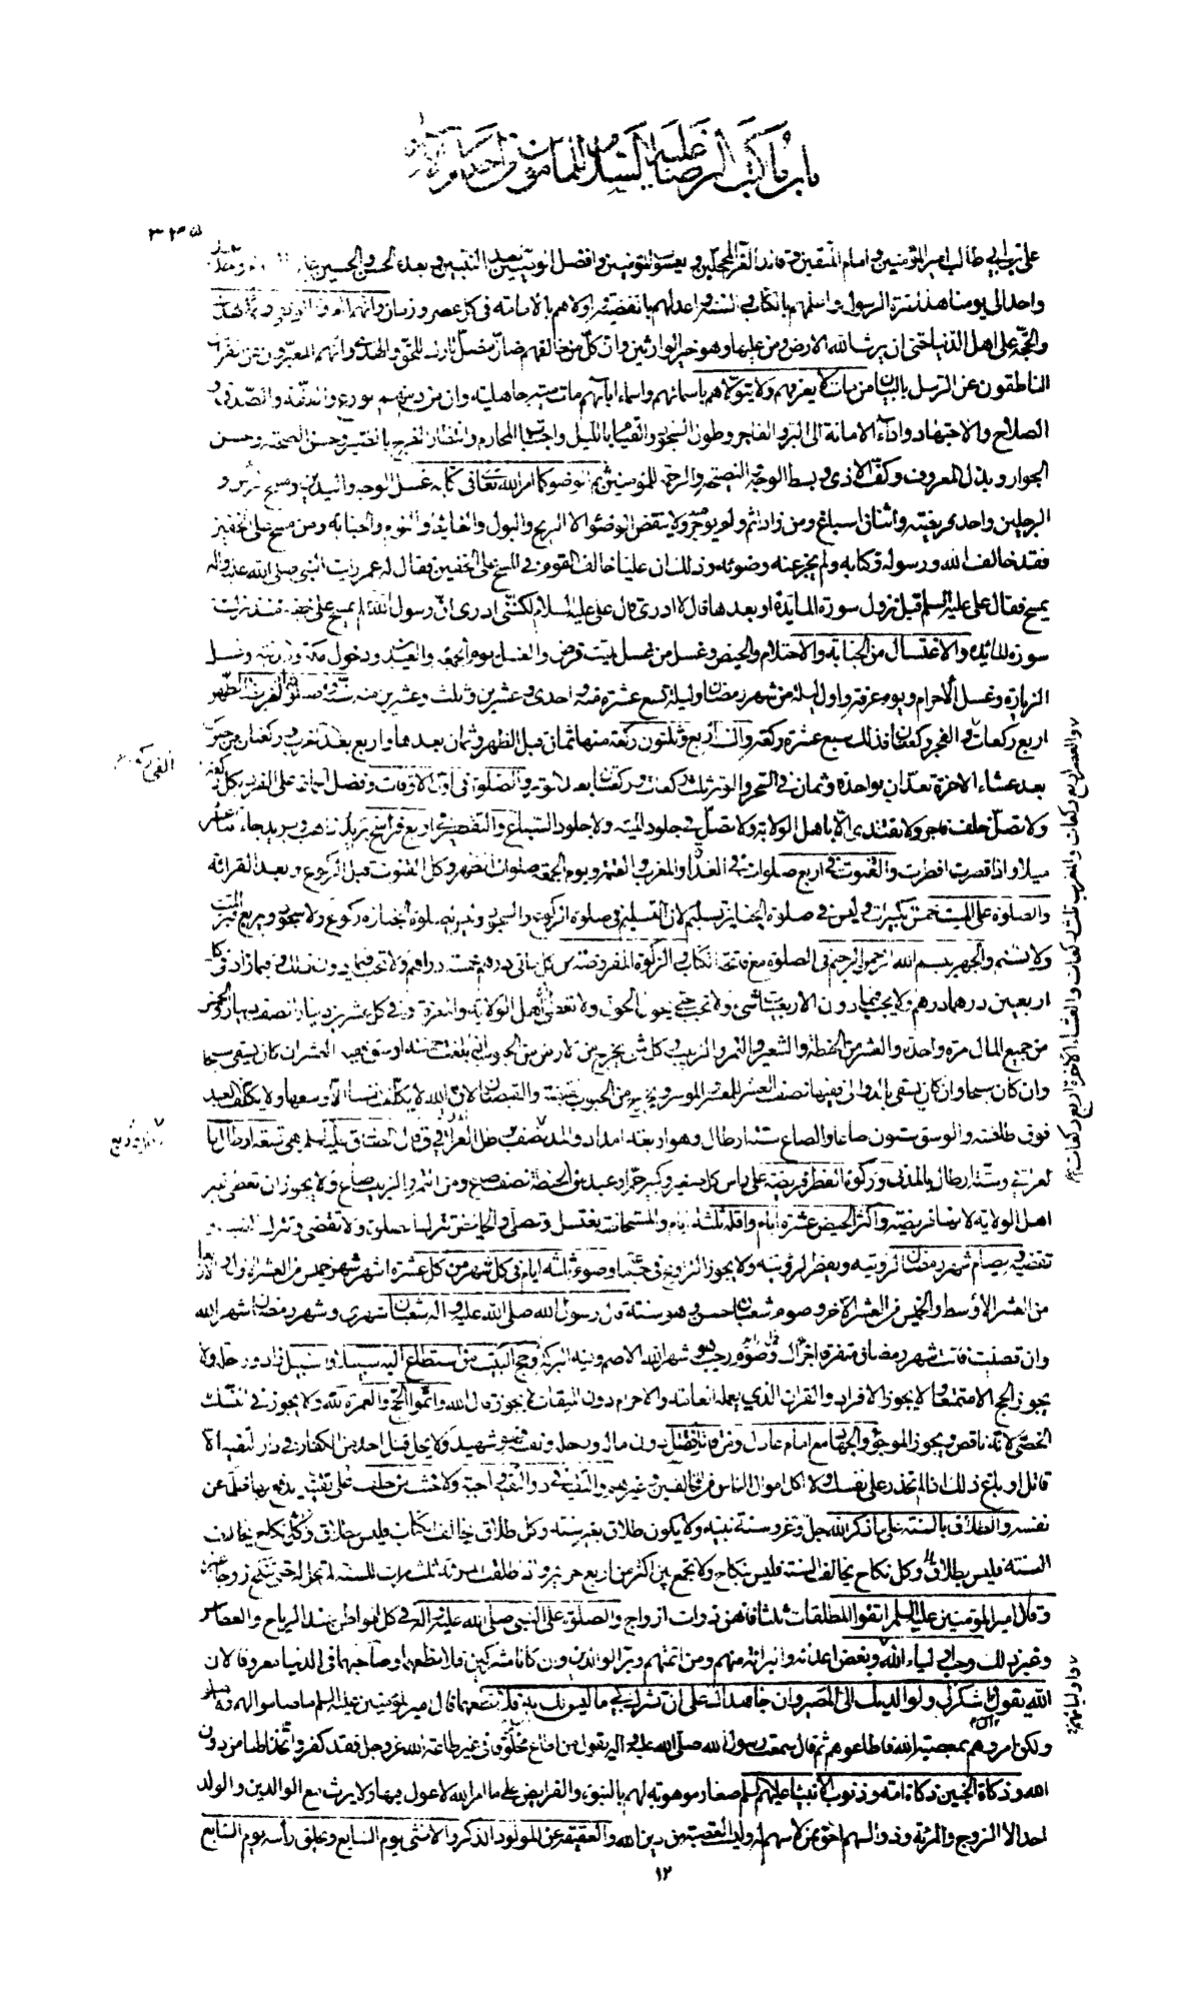 باب ما كتب الرضا عليه السلام للمامون
٣٢٥
علي بن ابي طالب امير المؤمنين و امام المتقين و قائد الغر المحجلين و يعسوب المؤمنين و افضل الوصيين بعد النبيين و بعده الحسن و الحسين
واحد الى يومنا هذا عترة الرسول و اعلمهم بالكتاب و السنة و اعدلهم بالقضية و اولاهم بالامامة في كل عصر و زمان و انهم
و الحجة على اهل الدنيا حتى ان يرث الله الارض و من عليها و هو خير الوارثين و ان كل من خالفهم ضال مضل تارك للحق و الهدى و انهم المعبرون عن القران
الناطقون عن الرسل بالبيان من مات لا يعرفهم ولا يتولاهم باسمائهم و اسماء ابائهم مات ميتة جاهلية و ان من دينهم الورع و العفة و الصدق و
الصلاح و الاجتهاد و اداء الامانة الى البر و الفاجر و طول السجود و القيام بالليل و اجتناب المحارم و انتظار الفرج بالصبر و حسن الصحبة و حسن
الجوار و بذل المعروف و كف الاذى و بسط الوجه و النصيحة و الرحمة للمؤمنين ثم الوضوء كما امر الله تعالى في كتابه غسل الوجه و اليدين و مسح الراس و
الرجلين واحدة فريضة و اثنتان اسباغ و من زاد اثم و لم يوجر ولا ينقض الوضوء الا الريح و البول و الغائط و النوم و الجنابة و من مسح على الخفين
فقد خالف الله و رسوله و كتابه و لم يجز عنه وضوئه و ذلك ان عليا خالف القوم في المسح على الخفين فقال له عمر رايت النبي صلى الله عليه و اله
يمسح فقال علي عليه السلم قبل نزول سورة المائدة او بعدها قال لا ادري قال علي عليه السلام لكنني ادري ان رسول الله لم يمسح على خفيه منذ نزلت
سورة المائدة و الاغتسال من الجنابة و الاحتلام و الحيض و غسل من غسل الميت فرض و الغسل يوم الجمعة و العيدين و دخول مكة و المدينة و غسل
الزيارة و غسل الاحرام و يوم عرفة و اول ليلة من شهر رمضان و ليلة تسع عشرة منه و احدى و عشرين و ثلث و عشرين منه سنة و صلوة الفريضة الظهر
اربع ركعات و الفجر ركعتان فذلك سبع عشرة ركعة و السنة اربع و ثلثون ركعة منها ثمان قبل الظهر و ثمان بعدها و اربع بعد المغرب و ركعتان من جلوس
بعد عشاء الاخرة تعدان بواحدة و ثمان في السحر و الوتر ثلث ركعات و ركعتان بعد الوتر و الصلوة في اول الاوقات و فضل الجماعة على الفرد بكل ركعة
ولا تصل خلف فاجر ولا تقتدى الا باهل الولاية ولا تصل في جلود الميتة ولا جلود السباع و التقصير في اربع فراسخ بريد ذاهب و بريد جاء اثنا عشر
ميلا و اذا قصرت افطرت و القنوت في اربع صلوات في الغداة و المغرب و العتمة و يوم الجمعة و صلوة الظهر و كل القنوت قبل الركوع و بعد القرائة
و الصلوة على الميت خمس تكبيرات و ليس في صلوة الجنايز تسليم لان التسليم في صلوة الركوع و السجود و ليس لصلوة الجنازة ركوع ولا سجود و يربع قبر الميت
ولا يسنم و الجهر ببسم الله الرحمن الرحيم في الصلوة مع فاتحة الكتاب و الزكوة المفروضة من كل مائتي درهم خمسة دراهم ولا تجب فيما دون ذلك و فيما زاد في كل
اربعين درهما درهم ولا تجب فيما دون الاربعينات شئ ولا تجب حتى يحول الحول ولا تعطى الا اهل الولاية و المعرفة و في كل عشرين دينارا نصف دينار و الخمس
من جميع المال مرة واحدة و العشر من الحنطة و الشعير و التمر و الزبيب و كل شئ يخرج من الارض من الحبوب اذا بلغت خمسة اوسق ففيه العشر ان كان يسقى سيحا
و ان كان يسقى بالدوالي ففيها نصف العشر للمعسر و الموسر و يخرج من الحبوب القبضة و القبضتان لان الله لا يكلف نفسا الا وسعها ولا يكلف العبد
فوق طاقته و الوسق ستون صاعا و الصاع ستة ارطال و هو اربعة امداد و المد رطلان و ربع برطل العراقي و قال الصادق عليه السلم هي تسعة ارطال بال
عراقي و ستة ارطال بالمدني و زكوة الفطر فريضة على راس كل صغير و كبير حر او عبد من الحنطة نصف صاع و من التمر و الزبيب صاع ولا يجوز ان تعطى غير
اهل الولاية لانها فريضة و اكثر الحيض عشرة ايام و اقله ثلثة ايام و المستحاضة تغتسل و تصلي و الحائض تترك الصلوة ولا تقضي و تترك الصيام و
تقضيه و يصام شهر رمضان لرؤيته و يفطر لرؤيته ولا يجوز التراويح في جماعة و صوم ثلثة ايام في كل شهر من كل عشرة ايام شهر خميس من العشر الاول و الاربعاء
من العشر الاوسط و الخميس من العشر الاخر و صوم شعبان حسن و هو سنة و قال رسول الله صلى الله عليه و اله شعبان شهري و شهر رمضان شهر الله
و ان قضيت فائت شهر رمضان متفرقا اجزاك و صوم رجب هو شهر الله الاصم و فيه البركة و حج البيت من استطاع اليه سبيلا و السبيل زاد و راحلة ولا
يجوز الحج الا متمتعا ولا يجوز الافراد و القران الذي يعمله العامة و الاحرام دون الميقات لا يجوز قال الله و اتموا الحج و العمرة لله ولا يجوز في النسك
الخصي لانه ناقص و يجوز الموجوء و الجهاد مع امام عادل و من قاتل فقتل دون ماله و رحله و نفسه فهو شهيد ولا يحل قتل احد من الكفار في دار التقية الا
قاتل او باغ و ذلك اذا لم تحذر على نفسك ولا اكل اموال الناس من المخالفين و غيرهم و التقية في دار التقية واجبة ولا حنث على من حلف على تقية يدفع بها ظلما عن
نفسه و الطلاق بالسنة على ما ذكر الله جل و عز و سنة نبيه ولا يكون طلاق بغير سنة و كل طلاق يخالف الكتاب فليس بطلاق و كل نكاح يخالف
السنة فليس بطلاق و كل نكاح يخالف السنة فليس بنكاح ولا تجمع بين اكثر من اربع حرائر و اذا طلقت المرئة ثلث مرات للسنة لم تحل له حتى تنكح زوجا غيره
و قال امير المؤمنين عليه السلم اتقوا المطلقات ثلثا فانهن ذوات ازواج و الصلوة على النبي صلى الله عليه و اله في كل المواطن عند الرياح و العطاس
و غير ذلك و حب اولياء الله و بغض اعدائه و البرائة منهم و من ائمتهم و بر الوالدين و ان كانا مشركين فلا تطعهما و صاحبهما في الدنيا معروفا لان
الله يقول اشكر لي و لوالديك الى المصير و ان جاهداك على ان تشرك بي ما ليس لك به علم فلا تطعهما قال امير المؤمنين عليه السلم ما صاموا لهم ولا صلوا
و لكن امروهم بمعصية الله فاطاعوهم ثم قال سمعت رسول الله صلى الله عليه و اله يقول من اطاع مخلوقا في غير طاعة الله عز و جل فقد كفر و اتخذ الها من دون
الله و ذكاة الجنين ذكاة امه و ذنوب الانبياء عليهم السلم صغار موهوبة لهم بالنبوة و الفرايض على ما امر الله لا عول فيها ولا يرث مع الوالدين و الولد
احد الا الزوج و المرئة و ذو السهم احق ممن لا سهم له و ليست العصبة من دين الله و العقيقة عن المولود الذكر و الانثى يوم السابع و يحلق رأسه يوم السابع
و العصر اربع ركعات و المغرب ثلث ركعات و العشاء الاخرة اربع ركعات
و اوليائهم
١٢